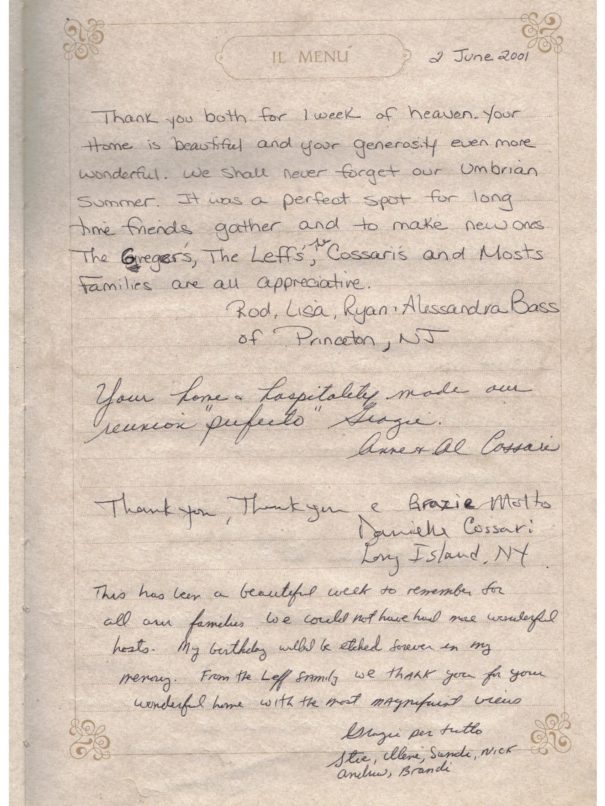 IL MENÚ
2 June 2001
Thank you both for 1 week of heaven. Your
Home is beautiful and your generosity even more
wonderful. We shall never forget our Umbrian
Summer. It was a perfect spot for long
time friends gather and to make new ones
The Greger's, The Leff's, The Cossaris and Mosts
Families are all appreciative.
Rod, Lisa, Ryan + Alessandra Bass
of Princeton, NJ
Your home & hospitality made our
reunion "perfecto" Grazie.
Anne & Al Cossari
Thank you, Thank you e Grazie Molto
Danielle Cossari
Long Island, NY
This has been a beautiful week to remember for
all our families We could not have had more wonderful
hosts. My birthday will be etched forever in my
memory. From the Leff family we thank you for your
wonderful home with the most magnificent views
Grazie per tutto
Ilene, Sandi, Nick
Andrew, Brandi